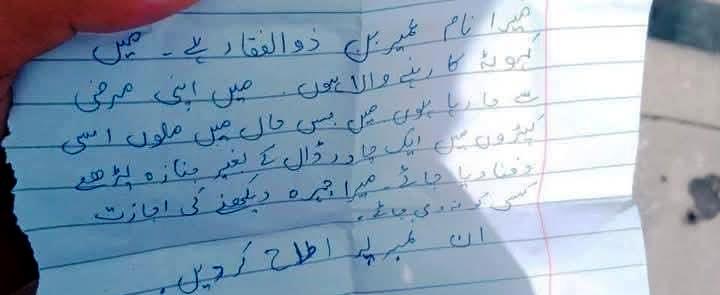 میرا نام نمیر بل ذوالفقار ہے۔ میں
کہوٹہ کا رہنے والا ہوں۔ میں اپنی مرضی
سے جا رہا ہوں میں جس حال میں ملوں اسی
کپڑوں میں ایک چادر ڈال کے بغیر جنازہ پڑھے
دفنا دیا جائے۔ میرا چہرہ دیکھنے کی اجازت
کسی کو نہ دی جائے۔
ان نمبر پر اطلاح کر دیں۔